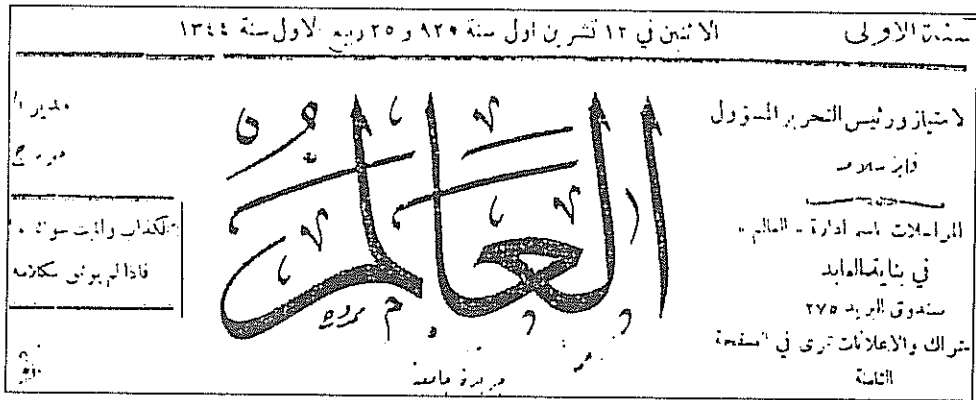 سنة الاولى
الاثنين في ١٢ تشرين اول سنة ٩٢٥ و ٢٥ ربيع الاول سنة ١٣٤٤
لامتياز ورئيس التحرير المسؤول
فايز سلامه
المراسلات باسم ادارة - العالم -
في بناية العابد
صندوق البريد ٢٧٥
شتراك والاعلانات ترى في الصفحة
الثامنة
العالم
جريدة جامعة
مدير ا
الكذاب والميت سواء
فاذا لم يوثق بكلامه